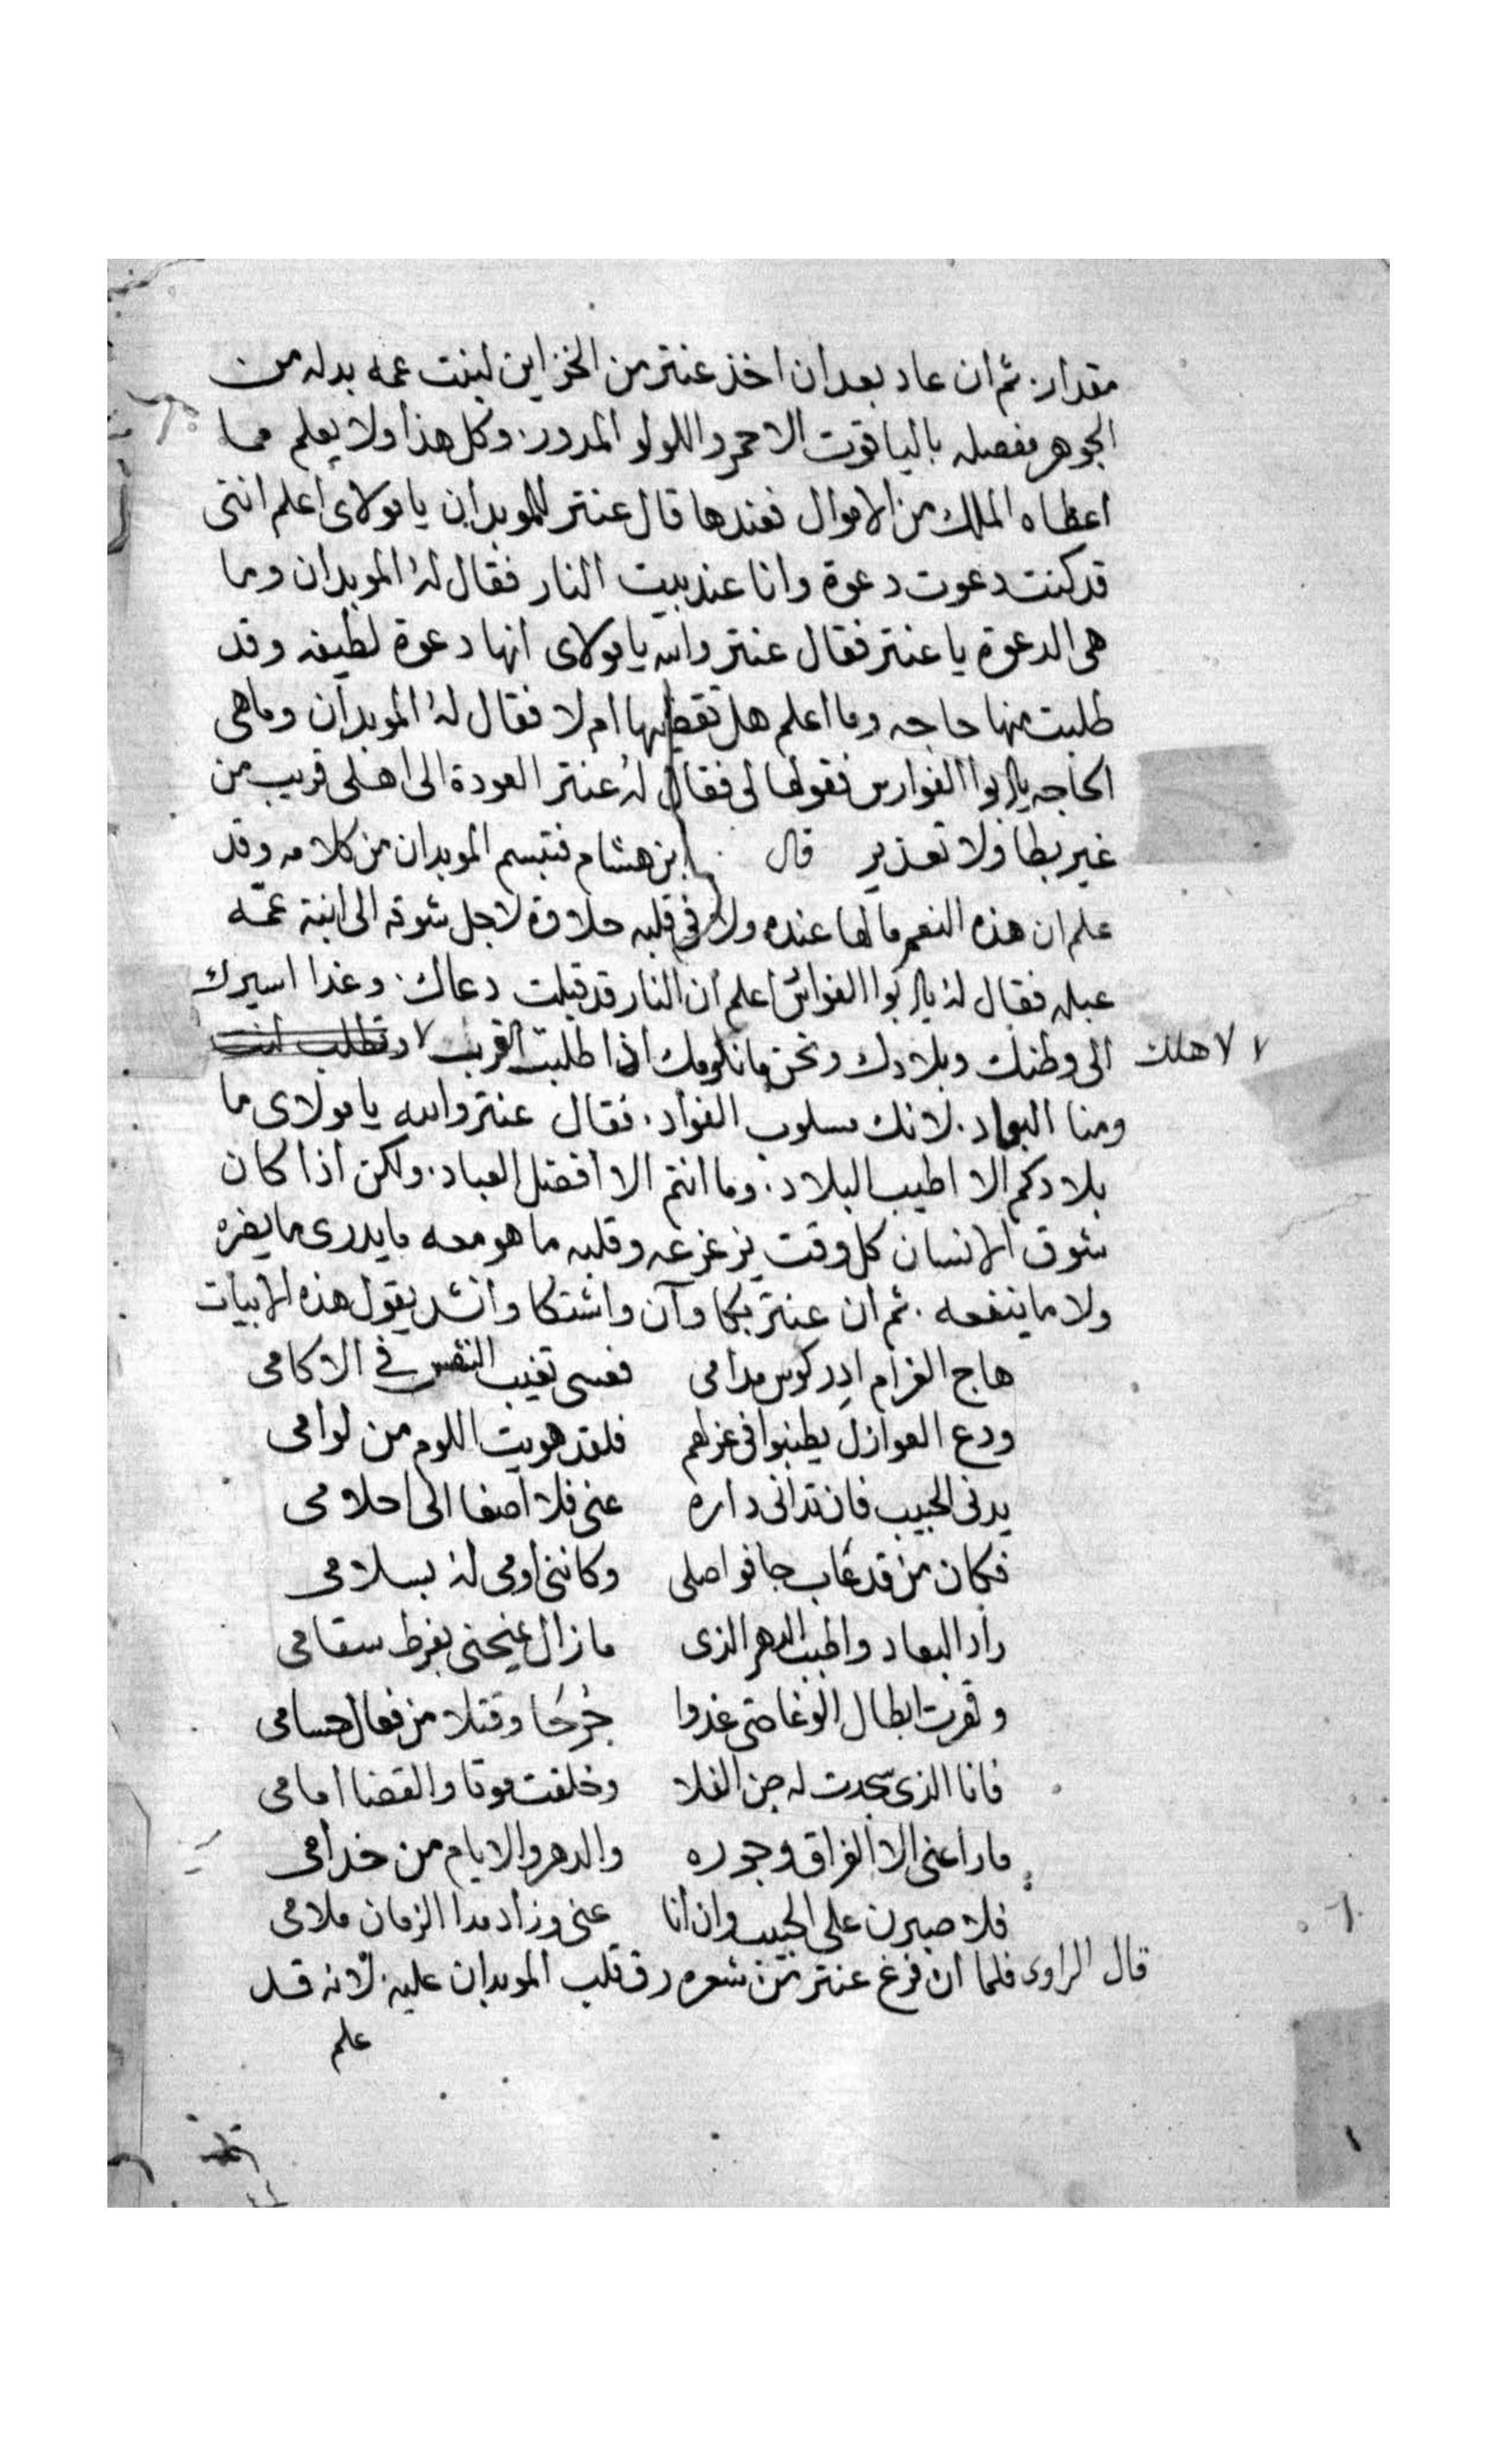 مقدار. ثم ان عاد بعد ان اخذ عنتر من الخزاين لبنت عمه بدله من
الجوهر مفصله بالياقوت الاحمر واللولو المدور. وكل هذا ولا يعلم مما
اعطاه الملك من الاموال فعندها قال عنتر للموبدان يا مولاى اعلم اننى
قد كنت دعوت دعوة وانا عند بيت النار فقال له الموبدان وما
هى الدعوة يا عنتر فقال عنتر والله يا مولاى انها دعوة لطيفه وقد
طلبت منها حاجه وما اعلم هل تقضيها ام لا فقال له الموبدان وماهى
الحاجه يا ابوا الفوارس فقولها لى فقال له عنتر العودة الى اهلى قريب من
غير بطا ولا تعذير قال ابن هشام فتبسم الموبدان من كلامه وقد
علم ان هذه النعم مالها عنده ولا فى قلبه حلاوة لاجل شوقه الى ابنة عمه
عبله فقال له يا ابوا الفوارس اعلم ان النار قد قبلت دعاك. وغدا اسيرك
الى وطنك وبلادك ونحن ما نلومك اذا طلبت القرب لا وتطلب انت
لاهلك
ومنا البعاد. لانك مسلوب الفواد. فقال عنتر والله يا مولاى ما
بلادكم الا اطيب البلاد. وما انتم الا افضل العباد. ولكن اذا كان
شوق الانسان كل وقت يزعزعه وقلبه ما هو معه ما يدرى ما يضره
ولا ما ينفعه. ثم ان عنتر بكا وآن واشتكا وانشد يقول هذه الابيات
هاج الغرام ادر كوس مدامى فعسى تغيب النفس فى الاكامى
ودع العوازل يطنبوا فى عزلهم فلقد هويت اللوم من لوامى
يدنى الحبيب فان تدانى داره عنى فلا اصغا الى احلامى
فكان من قد غاب جا فواصلى وكاننى اومى له بسلامى
راد البعاد والحبيب الدهر الذى مازال يمنحنى بفرط سقامى
وقهرت ابطال الوغا حتى غدوا جرحا وقتلا من فعال حسامى
فانا الذى سجدت له جن الفلا وخلقت موتا والقضا امامى
ماراعنى الا الفراق وجوره والدهر والايام من خدامى
فلاصبرن على الحبيب وان انا عنى وزاد مدا الزمان ملامى
قال الراوى فلما ان فرغ عنتر من شعره رق قلب الموبدان عليه. لانه قد
علم